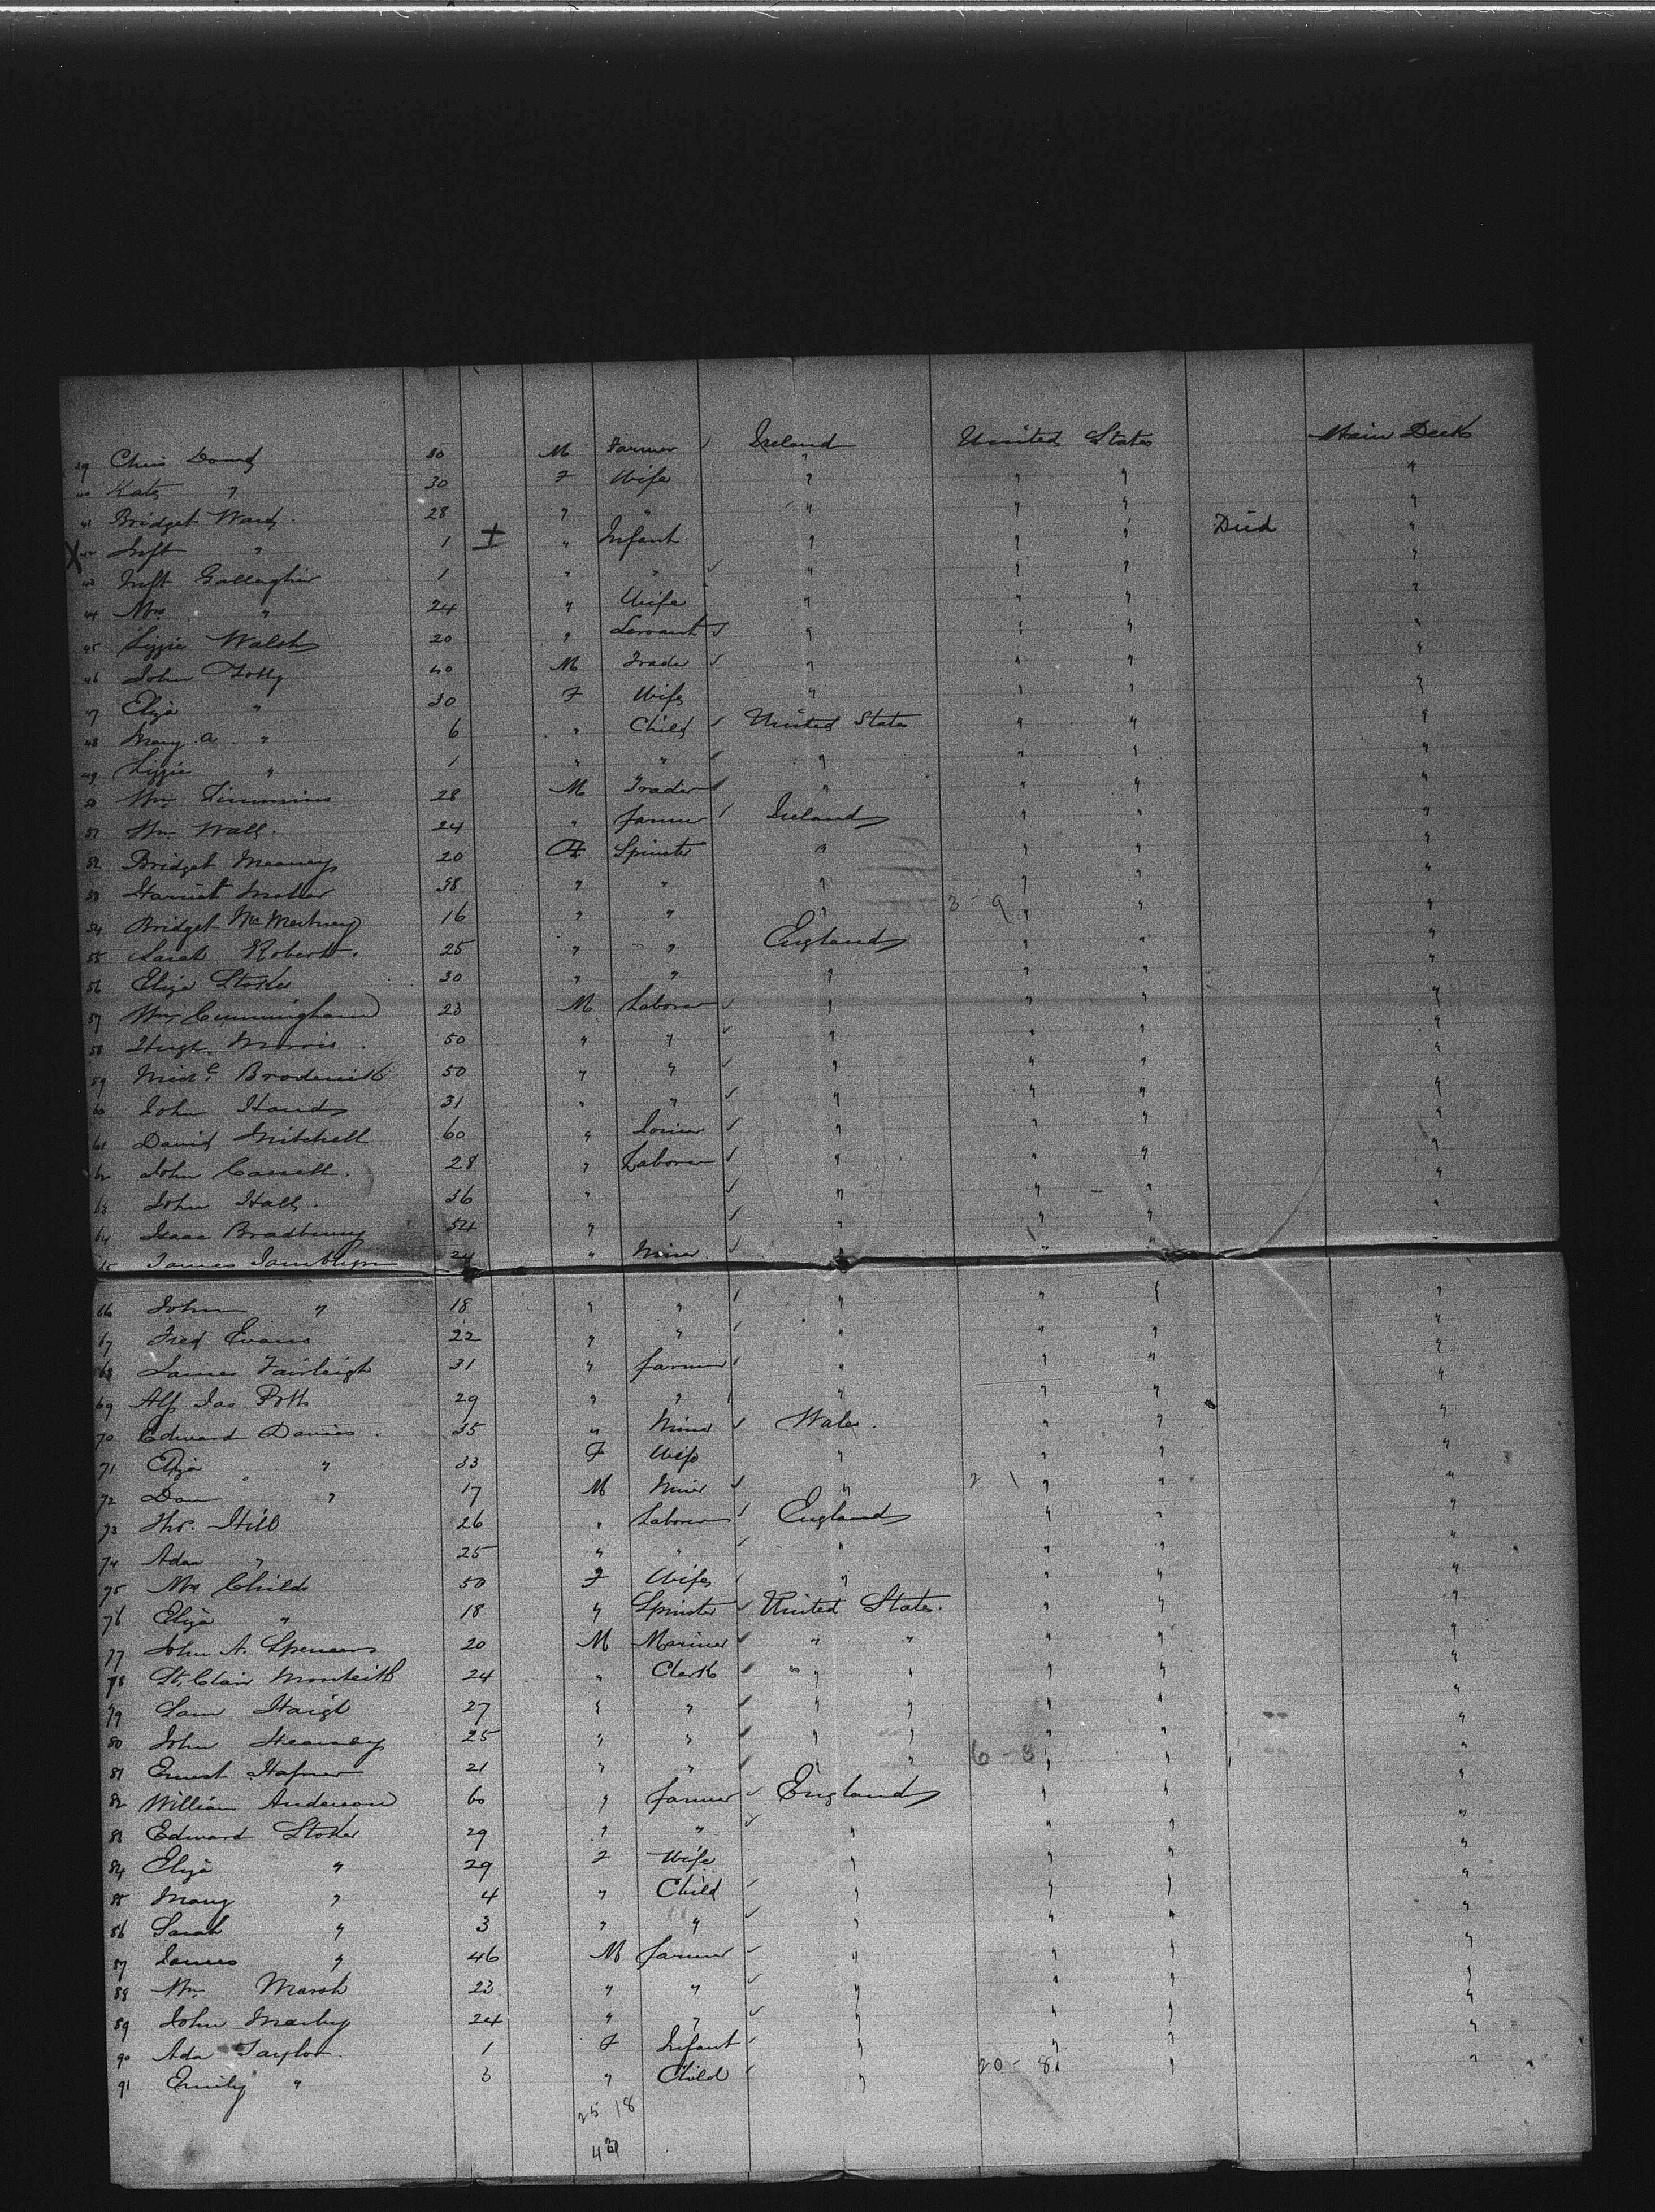 39 Chris Dowd 30 M Farmer ✓ Ireland United States Main Deck
40 Kate " 30 F Wife " " " "
41 Bridget Ward. 28 " " " " " "
X 42 Inft " 1 ± " Infant " " " Died "
43 Inft Gallagher 1 " " ✓ " " " "
44 Mrs " 24 " Wife " " " "
45 Lizzie Walsh 20 " Servant ✓ " " " "
46 John 40 M Trader ✓ " " " "
47 Eliza " 30 F Wife " " " "
48 Mary A " 6 " Child ✓ United States " " "
49 Lizzie " 1 " " ✓ " " " "
50 Wm Timmins 28 M Trader ✓ " " " "
51 Wm Wall. 24 " farmer ✓ Ireland " " "
52 Bridget Meaney 20 F Spinster " " " "
53 Harriet Maher 38 " " " " " "
54 Bridget 16 " " " 3-9 " " "
55 Sarah Roberts. 25 " " England " " "
56 Eliza Stoker 30 " " " " " "
57 Wm Cunningham 23 M Laborer ✓ " " " "
58 Hugh Morris. 50 " " ✓ " " " "
59 Micl Broderick 50 " " ✓ " " " "
60 John Hand 31 " " ✓ " " " "
61 David Mitchell 60 " Joiner ✓ " " " "
62 John 28 " Laborer ✓ " " " "
63 John Hall. 36 " ✓ " " " "
64 Isaac Bradbury 54 " ✓ " " " "
65 James Tamblyn 24 " Miner ✓ " " " "
66 John " 18 " " ✓ " " " "
67 Fred Evans 22 " " ✓ " " " "
68 James Fairleigh 31 " farmer ✓ " " " "
69 Alf Jas Potts 29 " " ✓ " " " "
70 Edward Davies. 35 " Miner ✓ Wales. " " "
71 Eliza " 33 F Wife " " " "
72 Dan " 17 M Miner ✓ " 2 1 " " "
73 Thos. Hill 26 " Laborer ✓ England " " "
74 Adam " 25 " " ✓ " " " "
75 Mrs Childs 50 F Wife ✓ " " " "
76 Eliza " 18 " Spinster ✓ United States. " " "
77 John A. Spencer 20 M Mariner ✓ " " " " "
78 St. Clair Monteith 24 " Clerk ✓ " " " " "
79 Sam Haigh 27 " " ✓ " " " " "
80 John 25 " " ✓ " " " " "
81 Ernest Hafner 21 " " ✓ " " 6-3 " " "
82 William Anderson 60 " farmer ✓ England " " "
83 Edward Stoker 29 " " ✓ " " " "
84 Eliza " 29 F Wife " " " "
85 Mary " 4 " Child ✓ " " " "
86 Sarah " 3 " " ✓ " " " "
87 James " 46 M farmer ✓ " " " "
88 Wm Marsh 23 " " ✓ " " " "
89 John 24 " " ✓ " " " "
90 Ada Taylor. 1 F Infant ✓ " " " "
91 Emily " 3 " Child ✓ " 20-8 " " "
25 18
43